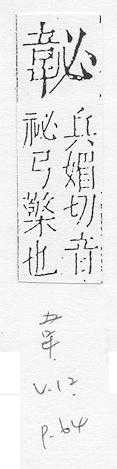 䪐
兵媚切音
祕弓檠也
v.12
p.64